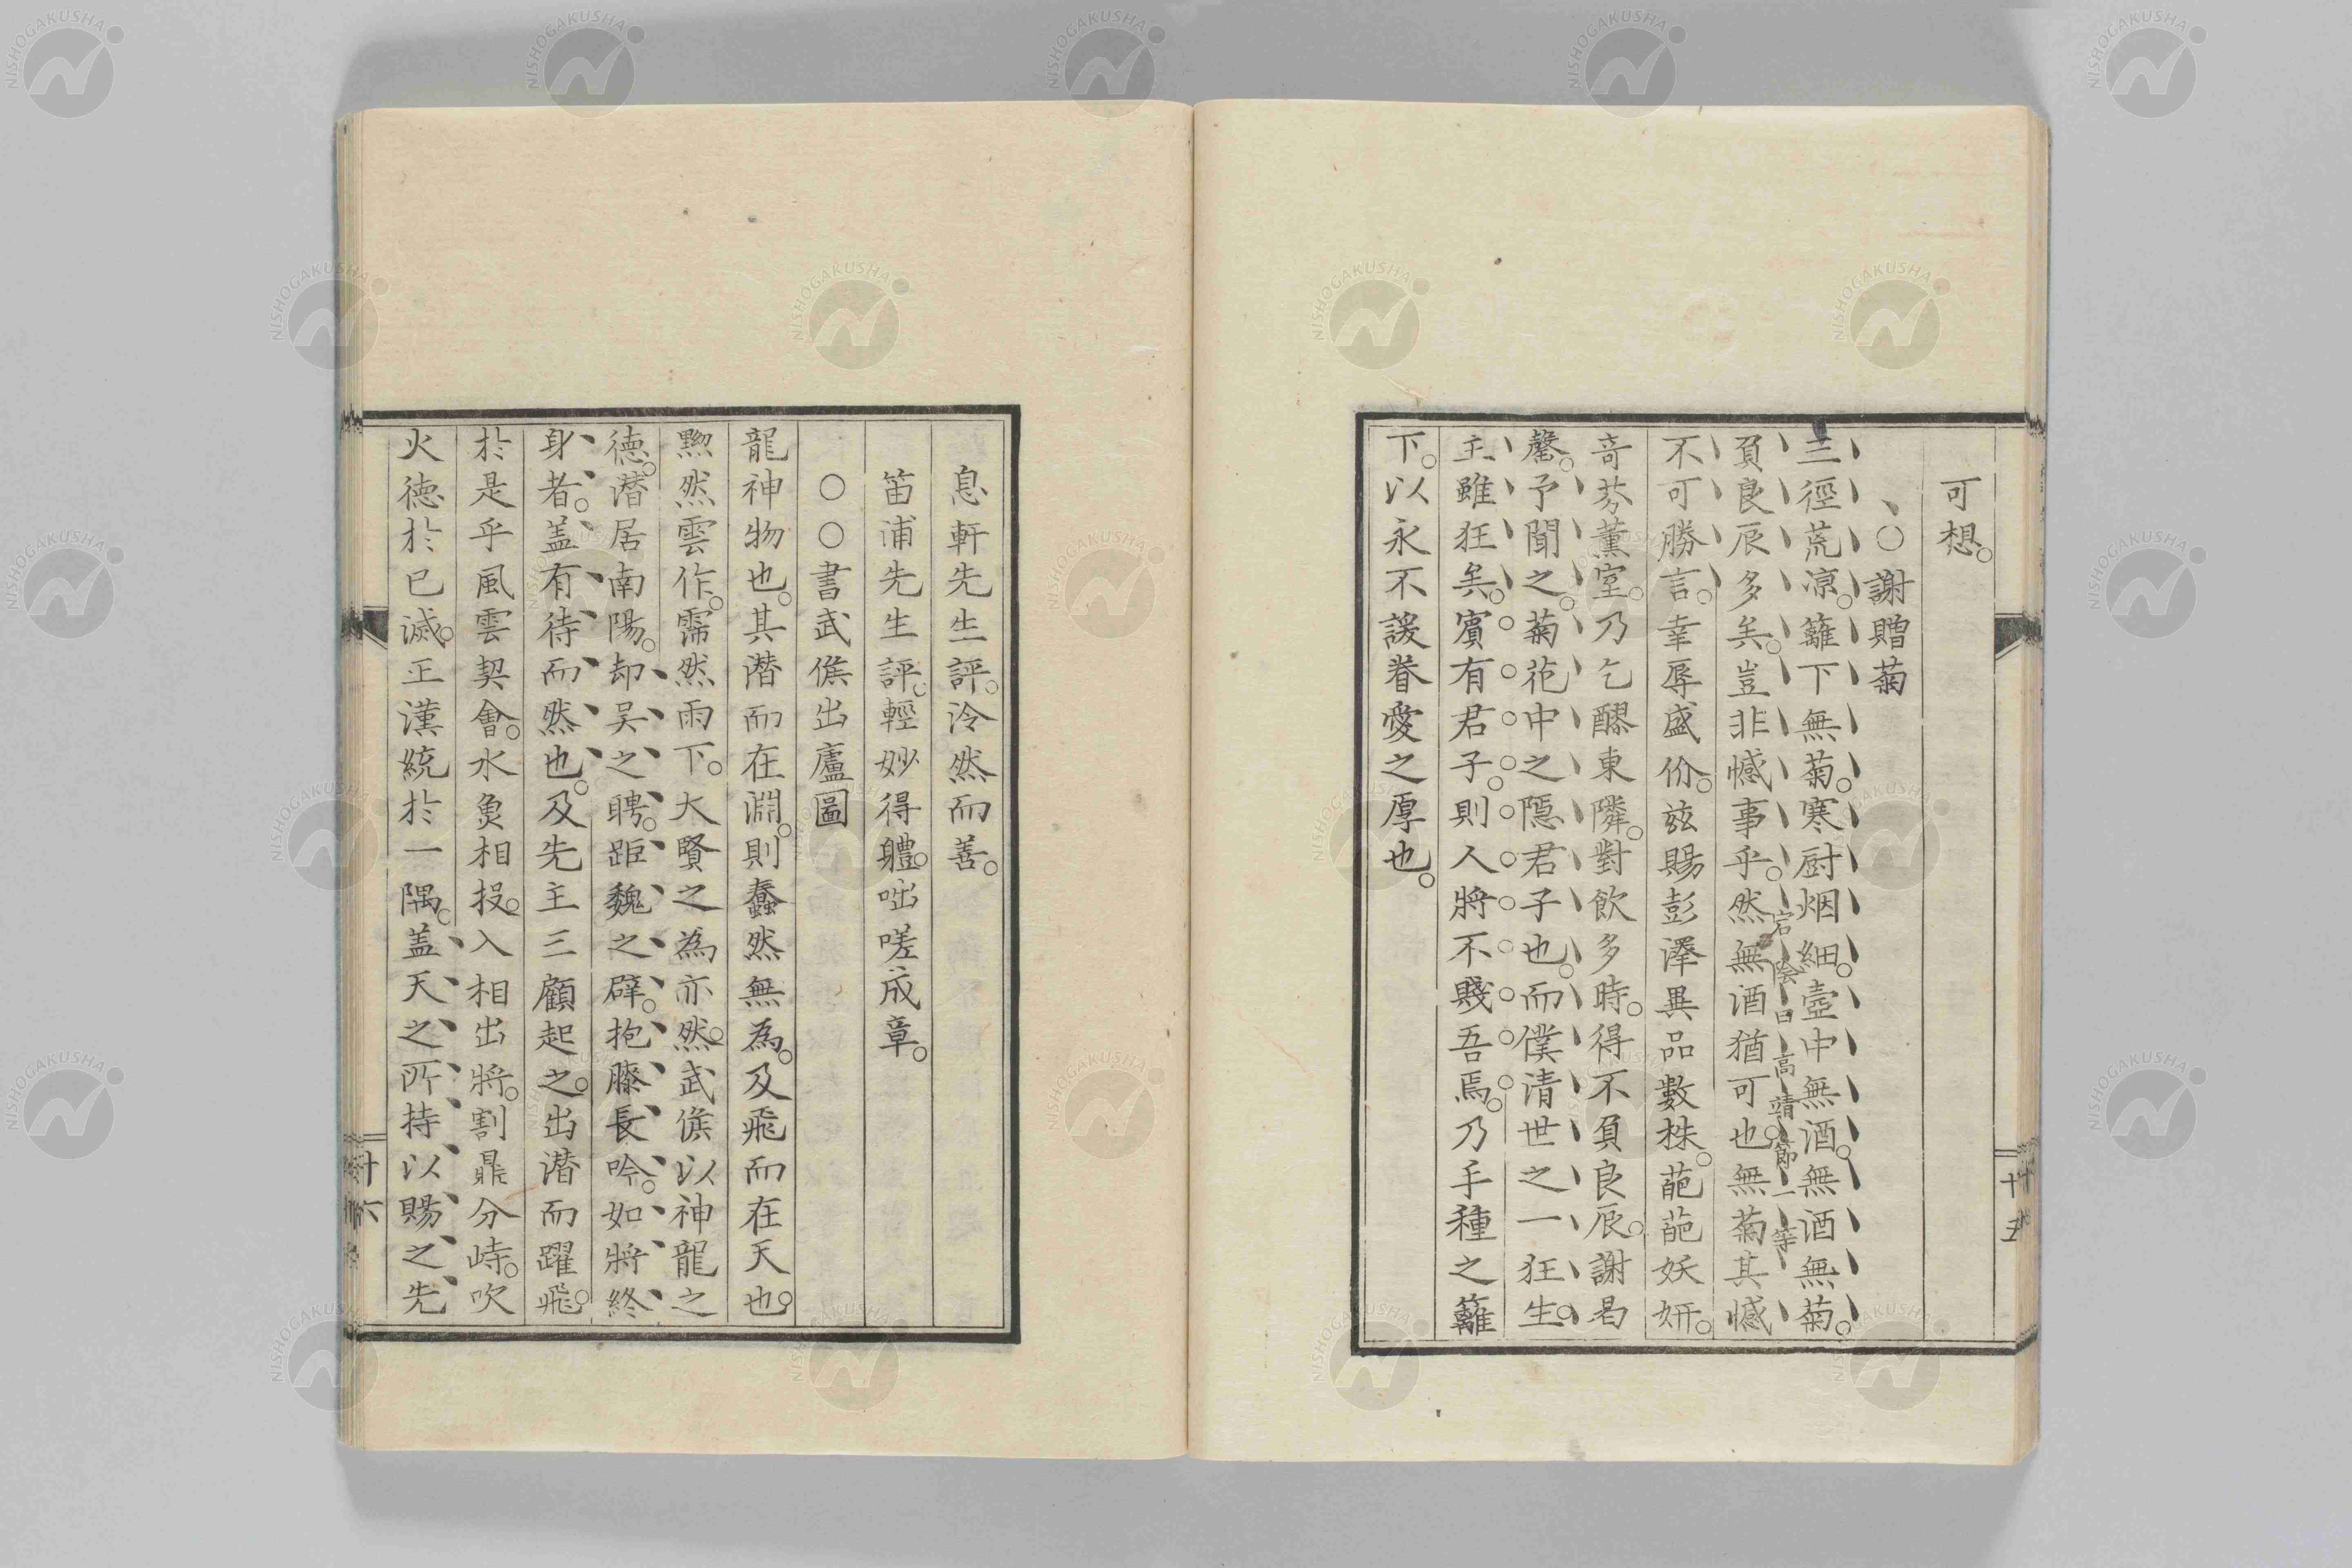 可想。
、○謝贈菊
三徑荒凉。籬下無菊。寒厨烟細。壼中無酒。無酒無菊。
負良辰多矣。豈非憾事乎。然無酒猶可也。無菊其憾
宕陰曰高靖節一等
不可勝言。幸辱盛价。玆賜彭澤異品數株。葩葩妖妍。
奇芬薰室。乃乞醪東隣。對飲多時。得不負良辰。謝曷
罄。予聞之。菊花中之隱君子也。而僕清世之一狂生。
主雖狂矣。賓有君子。則人將不賤吾焉。乃手種之籬
下。以永不諼眷愛之厚也。
十五
息軒先生評。泠然而善。
笛浦先生評。輕妙得體。咄嗟成章。
○○書武侯出廬圖
龍神物也。其潛而在淵。則蠢然無為。及飛而在天也。
黝然雲作。霈然雨下。大賢之為亦然。然武侯以神龍之
德。潛居南陽。却吴之聘。距魏之辟。抱膝長吟。如將終
身者。盖有待而然也。及先主三顧起之。出潛而躍飛。
於是乎風雲契會。水魚相投。入相出將。割鼎分峙。吹
火德於已滅。正漢統於一隅。盖天之所持以賜之先
十六
NISHOGAKUSHA